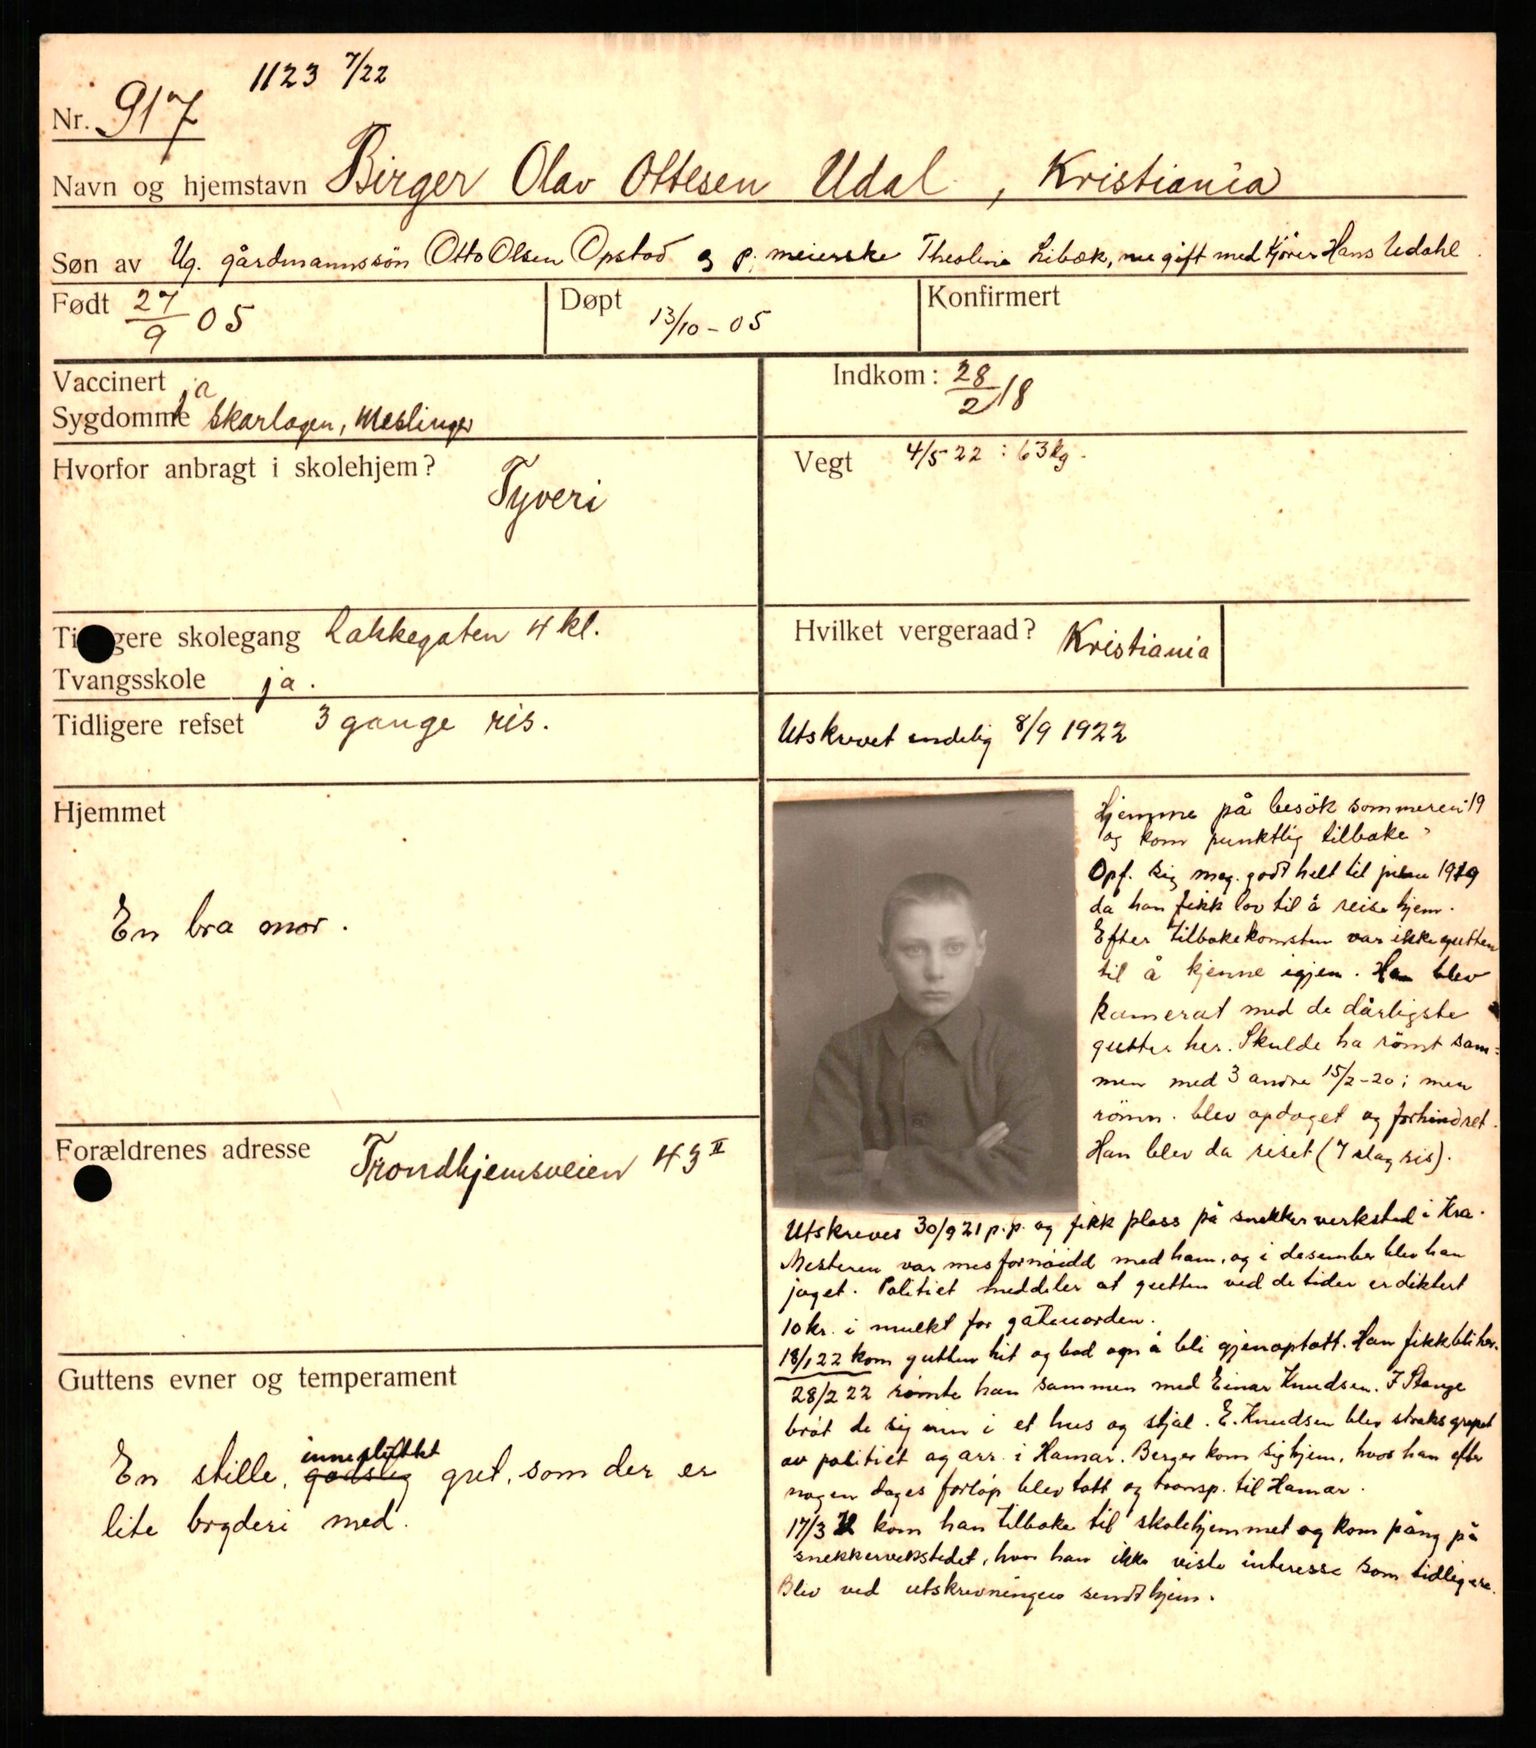 1123 7/22
Nr. 917
Navn og hjemstavn Birger Olav Ottesen Udal, Kristiania
Søn av Ug. gårdmannssön Otto Olsen Opstad og p. meierske Theoline Libæk, nu gift med Kjörer Hans Udahl.
Født 27/9 05 Døpt 13/10-05 Konfirmert
Vaccinert ja
Sygdomme Skarlagen, Meslinger
Indkom: 28/2 18
Hvorfor anbragt i skolehjem? Tyveri
Vegt 4/5 22 : 63kg.
Tidligere skolegang Lakkegaten 4 kl.
Tvangsskole ja.
Hvilket vergeraad? Kristiania
Tidligere refset 3 gange ris.
Utskrevet endelig 8/9 1922
Hjemmet
En bra mor.
Forældrenes adresse Trondhjemsveien 43 II
Guttens evner og temperament
inneslüttet
En stille, godslig gut, som der er
lite bryderi med.
Hjemme på besök sommeren 19
og kom punktlig tilbake
Opf. sig meg. godt helt til julen 1919
da han fikk lov til å reise hjem.
Efter tilbakekomsten var ikke gutten
til å kjenne igjen. Han blev
kamerat med de dårligste
gutter her. Skulde ha römt sam=
men med 3 andre 15/2-20; men
römn. blev opdaget og forhindret.
Han blev da riset (7 slag ris).
Utskreves 30/9 21 p.p. og fikk plass på snekkerverksted i Kra.
Mesteren var misfornöidd med ham, og i desember blev han
jaget. Politiet meddeler at gutten ved de tider er diktert
10 kr. i mulkt for gateuorden.
18/1 22 kom gutten hit og bad om å bli gjenoptatt. Han fikk bli her.
28/2 22 römte han sammen med Einar Knudsen. I Stange
bröt de sig inn i et hus og stjal. E. Knudsen blev straks grepet
av politiet og arr. i Hamar. Berger kom sig hjem, hvor han efter
nogen dages forlöp blev tatt og transp. til Hamar.
17/3 kom han tilbake til skolehjemmet og kom påny på
snekkerverkstedet, hvor han ikke viste interesse som tidligere.
Blev ved utskrivningen sendt hjem.